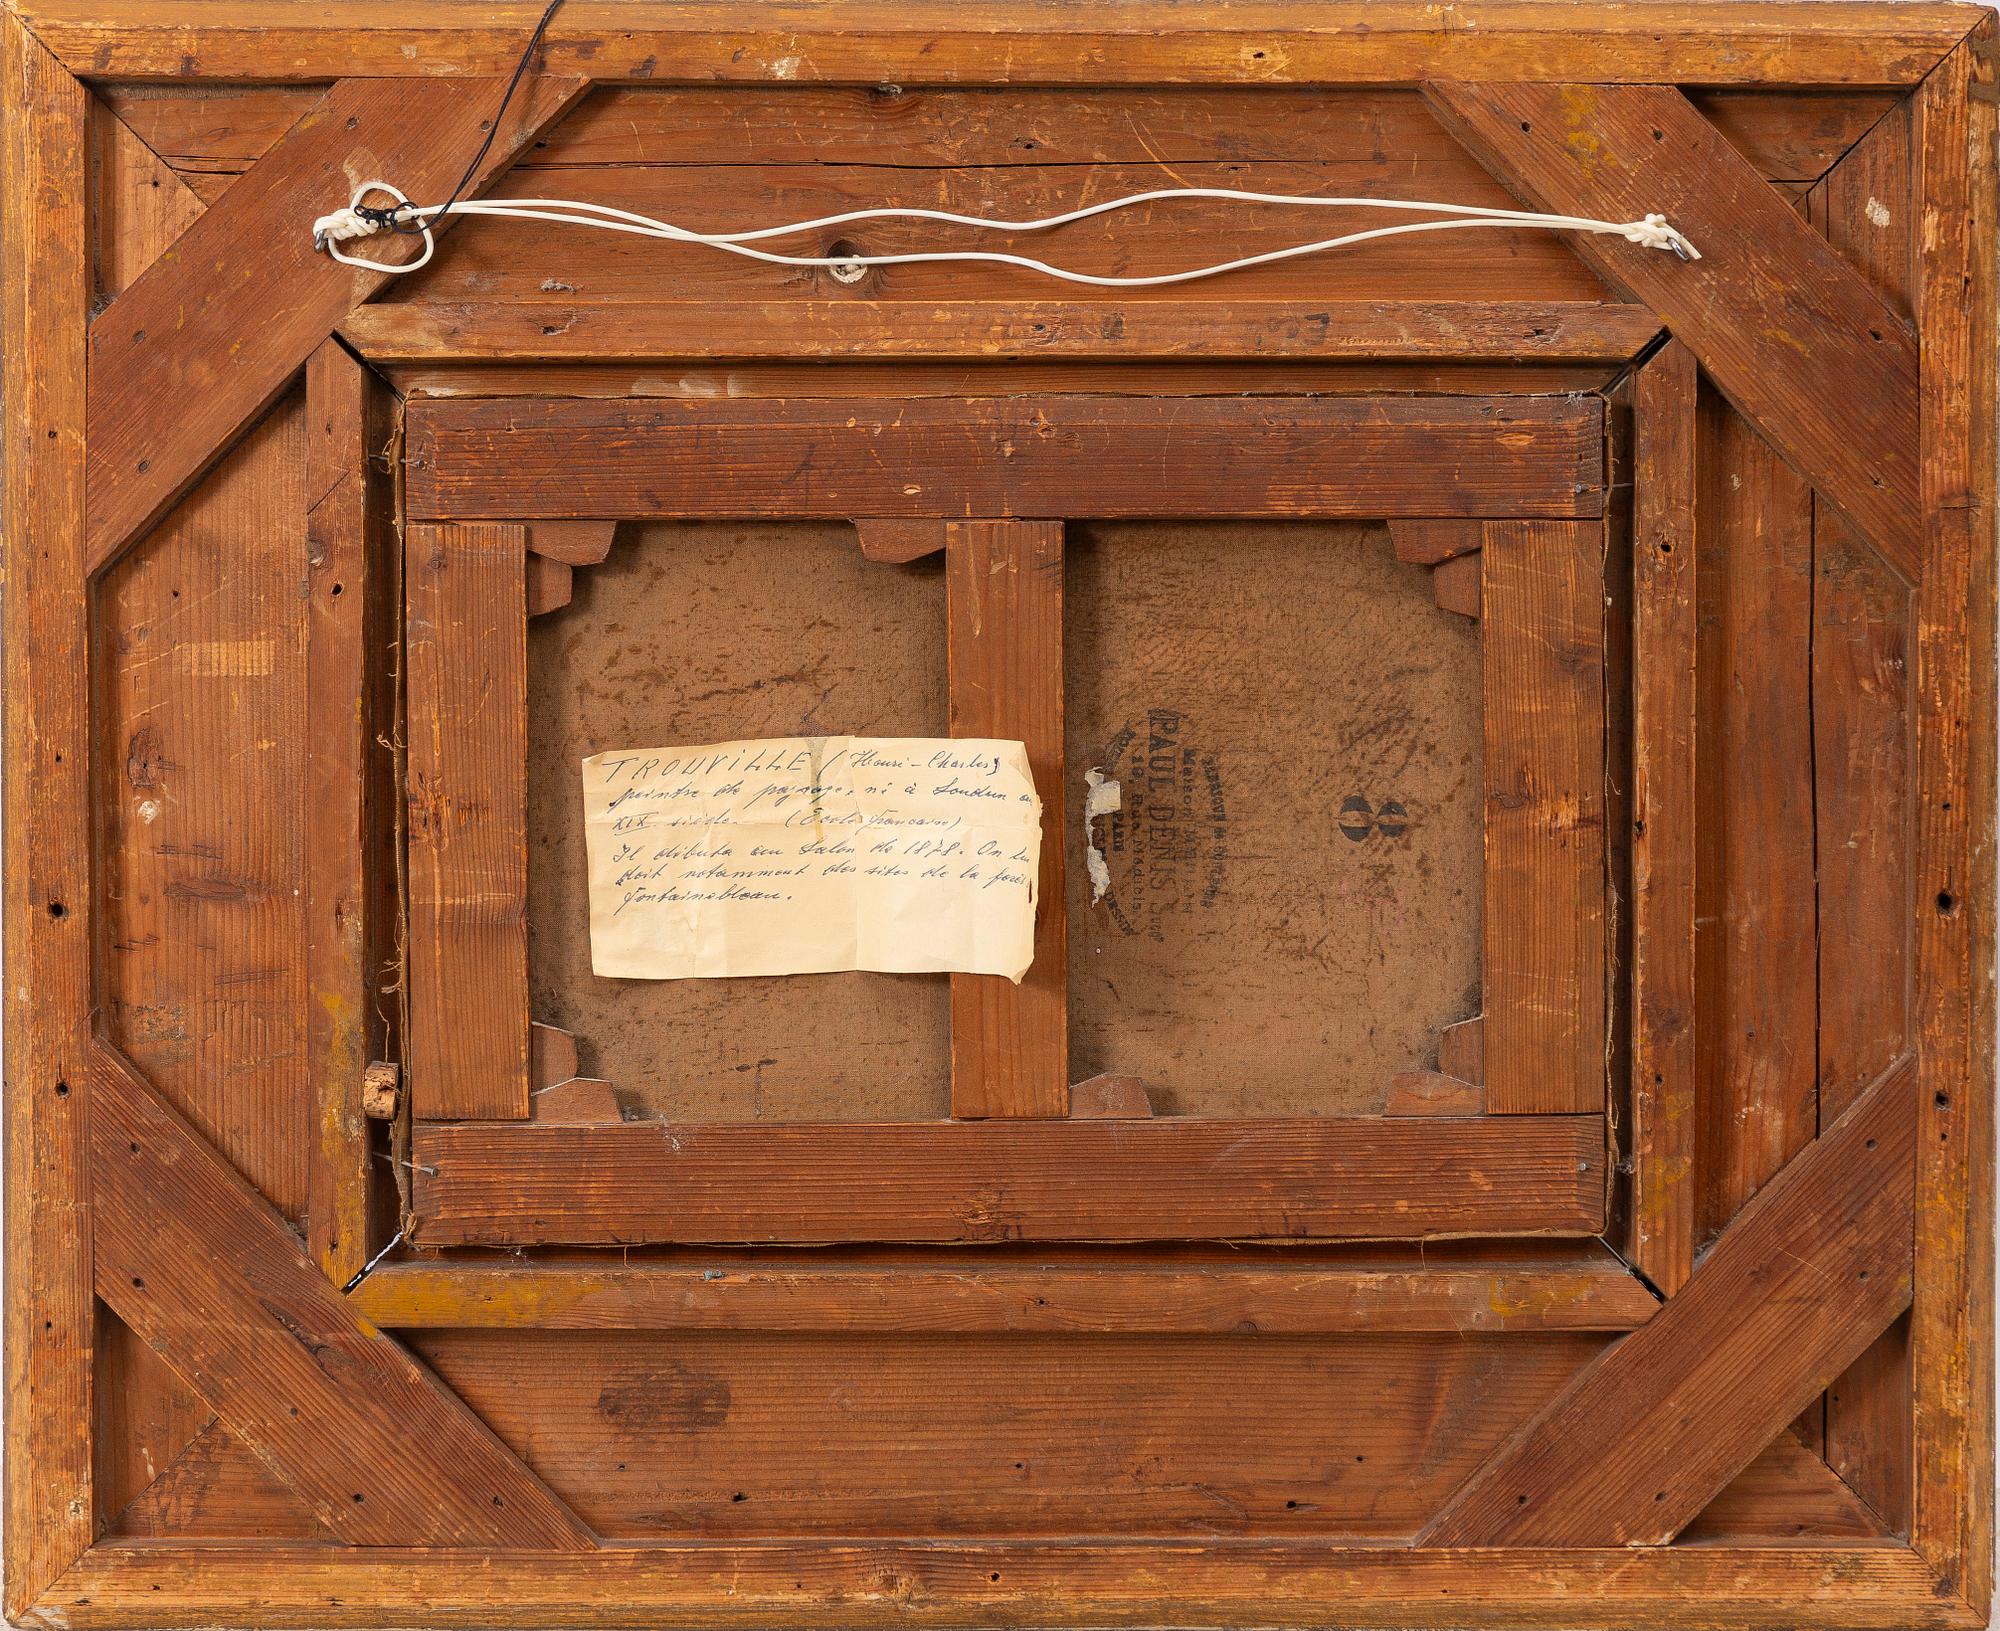 TROUVILLE (Henri-Charles)
peintre de paysage, né à Loudun au
XIX siècle. (École française)
Il débuta au Salon de 1878. On lui
doit notamment des sites de la forêt
Fontainebleau.
PAUL DENIS Succr
Maison
19, Rue de Médicis,
PARIS
DESSIN
8